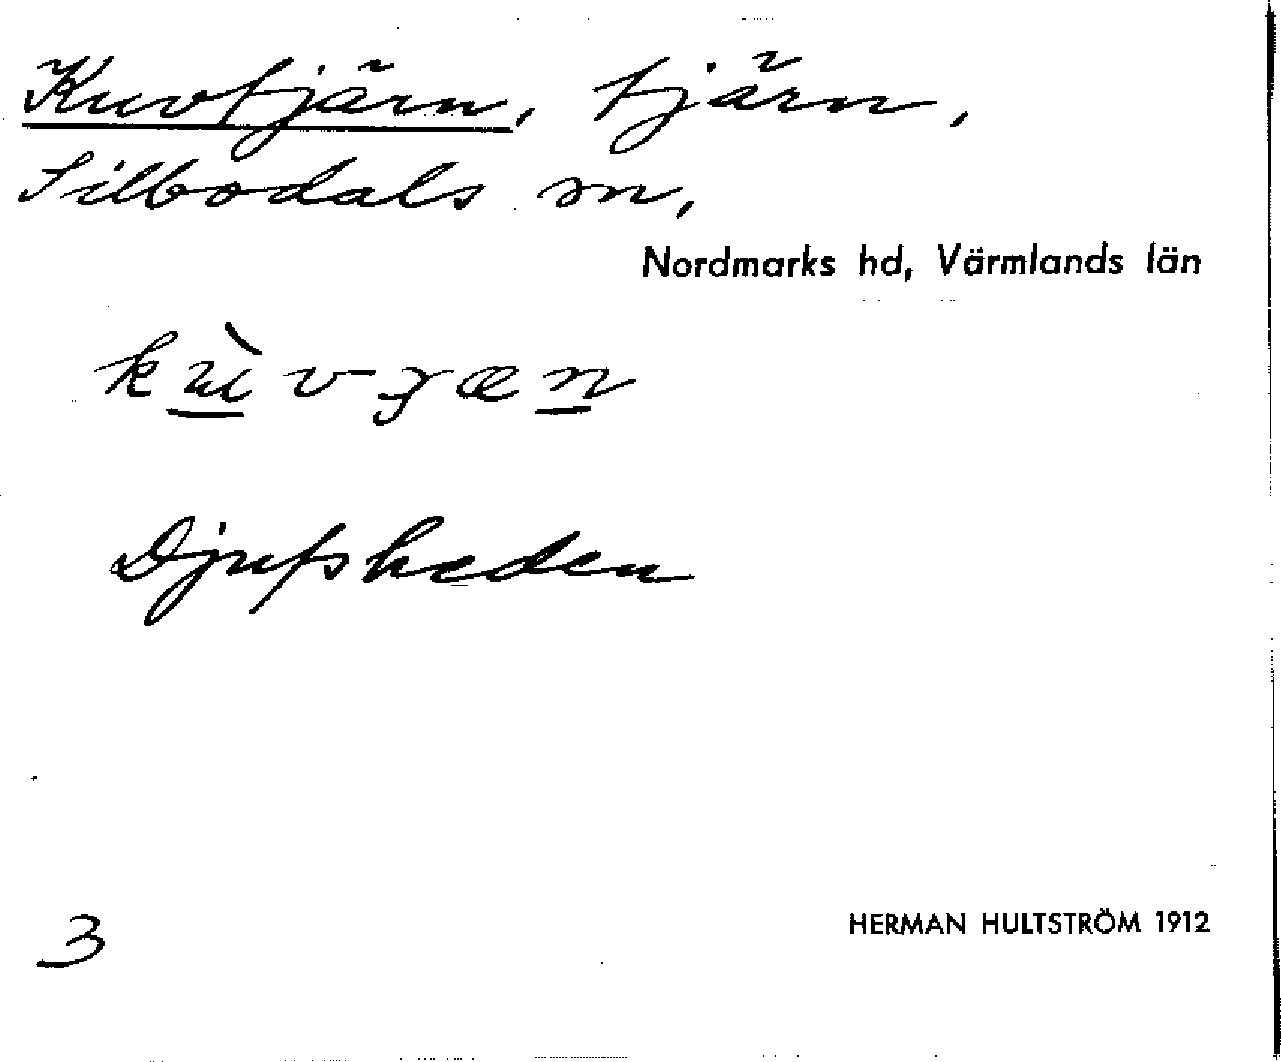 Kuvtjärn, tjärn,
Silbodals sn,
Nordmarks hd, Värmlands län
Djupsheden
3
HERMAN HULTSTRÖM 1912